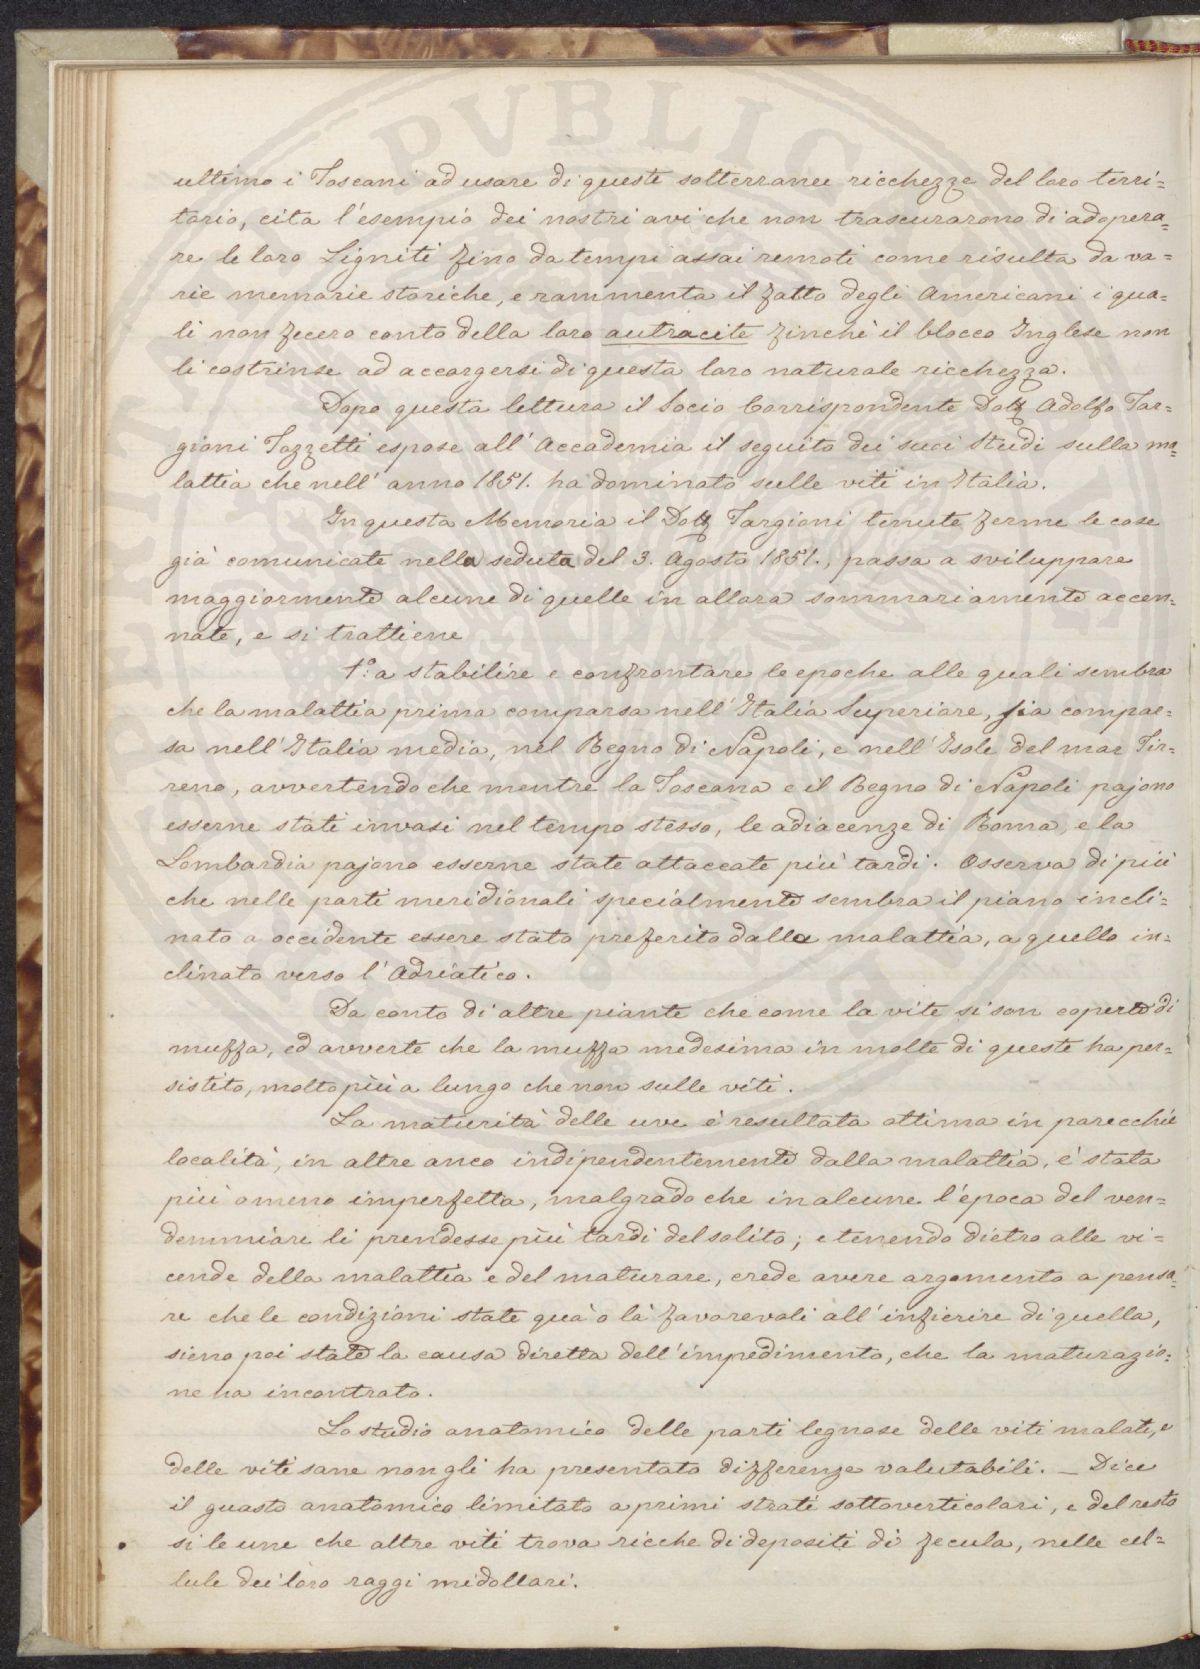 ultimo i Toscani ad usare di queste sotterranee ricchezze del loro terri=
torio, cita l'esempio dei nostri avi che non trascurarono di adopera=
re le loro Ligniti fino da tempi assai remoti come risulta da va=
rie memorie storiche, e rammenta il fatto degli Americani i qua=
li non fecero conto della loro autracite finchè il blocco Inglese non
li costrinse ad accorgersi di questa loro naturale ricchezza.
Dopo questa lettura il Socio Corrispondente Dott Adolfo Tar=
gioni Tozzetti espose all'Accademia il seguito dei suoi Studi sulla ma=
lattia che nell'anno 1851. ha dominato sulle viti in Italia.
In questa Memoria il Dott Targioni tenute ferme le cose
già comunicate nella seduta del 3. Agosto 1851., passa a sviluppare
maggiormente alcune di quelle in allora sommariamente accen=
nate, e si trattiene
1.° a stabilire e confrontare le epoche alle quali sembra
che la malattia prima comparsa nell'Italia Superiore, sia compar=
sa nell'Italia media, nel Regno di Napoli, e nell'Isole del mar Tir=
reno, avvertendo che mentre la Toscana e il Regno di Napoli pajono
esserne stati invasi nel tempo stesso, le adiacenze di Roma, e la
Lombardia pajono esserne state attaccate più tardi. Osserva di più
che nelle parti meridionali specialmente sembra il piano incli=
nato a occidente essere stato preferito dalla malattia, a quello in=
clinato verso l'Adriatico.
Da conto di altre piante che come la vite si son coperte di
muffa, ed avverte che la muffa medesima in molte di queste ha per=
sistito, molto più a lungo che non sulle viti.
La maturità delle uve è resultata ottima in parecchie
località, in altre anco indipendentemente dalla malattia, è stata
più o meno imperfetta, malgrado che in alcune l'epoca del ven=
demmiare li prendesse più tardi del solito; e tenendo dietro alle vi=
cende della malattia e del maturare, crede avere argomento a pensa=
re che le condizioni state quà o là favorevoli all'infierire di quella,
sieno poi state la causa diretta dell'impedimento, che la maturazio=
ne ha incontrato.
Lo studio anatomico delle parti legnose delle viti malate, e
delle viti sane non gli ha presentato differenze valutabili. _ Dice
il guasto anatomico limitato a primi strati sottoverticolari, e del resto
si le une che altre viti trova ricche di depositi di fecula, nelle cel=
lule dei loro raggi midollari.